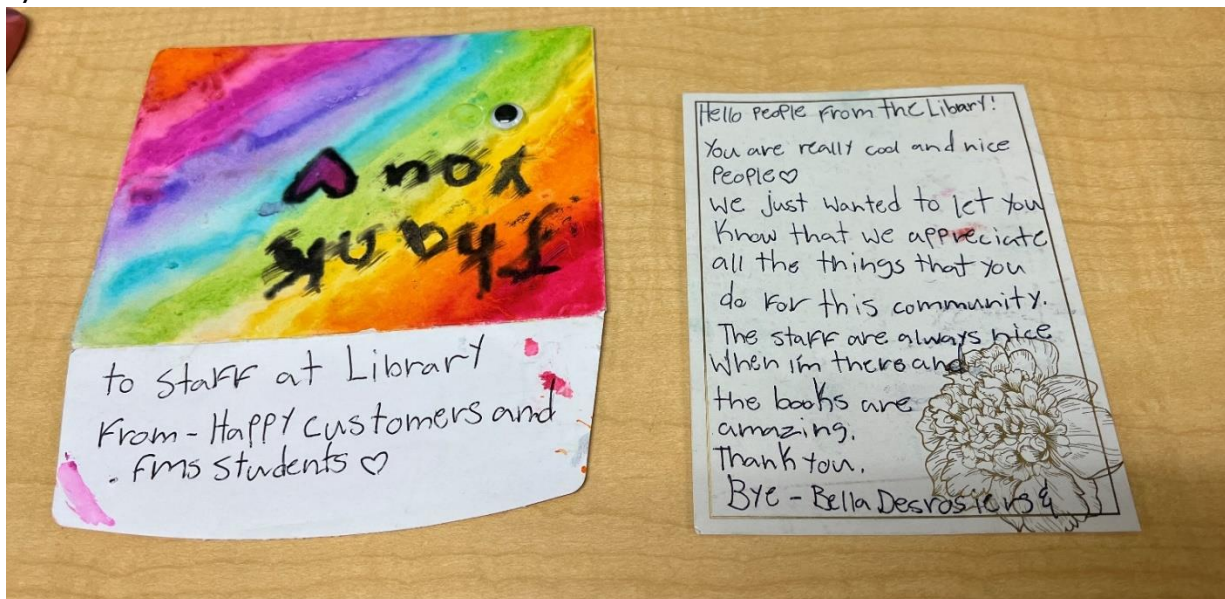 Thank
you
to staff at Library
From - Happy customers and
. Fms students ♡
Hello People From the Libary!
You are really cool and nice
People ♡
we just wanted to let you
Know that we appreciate
all the things that you
do For this community.
The staff are always nice
When i'm there and
the books are
amazing.
Thank you,
Bye - Bella Desrosiers &